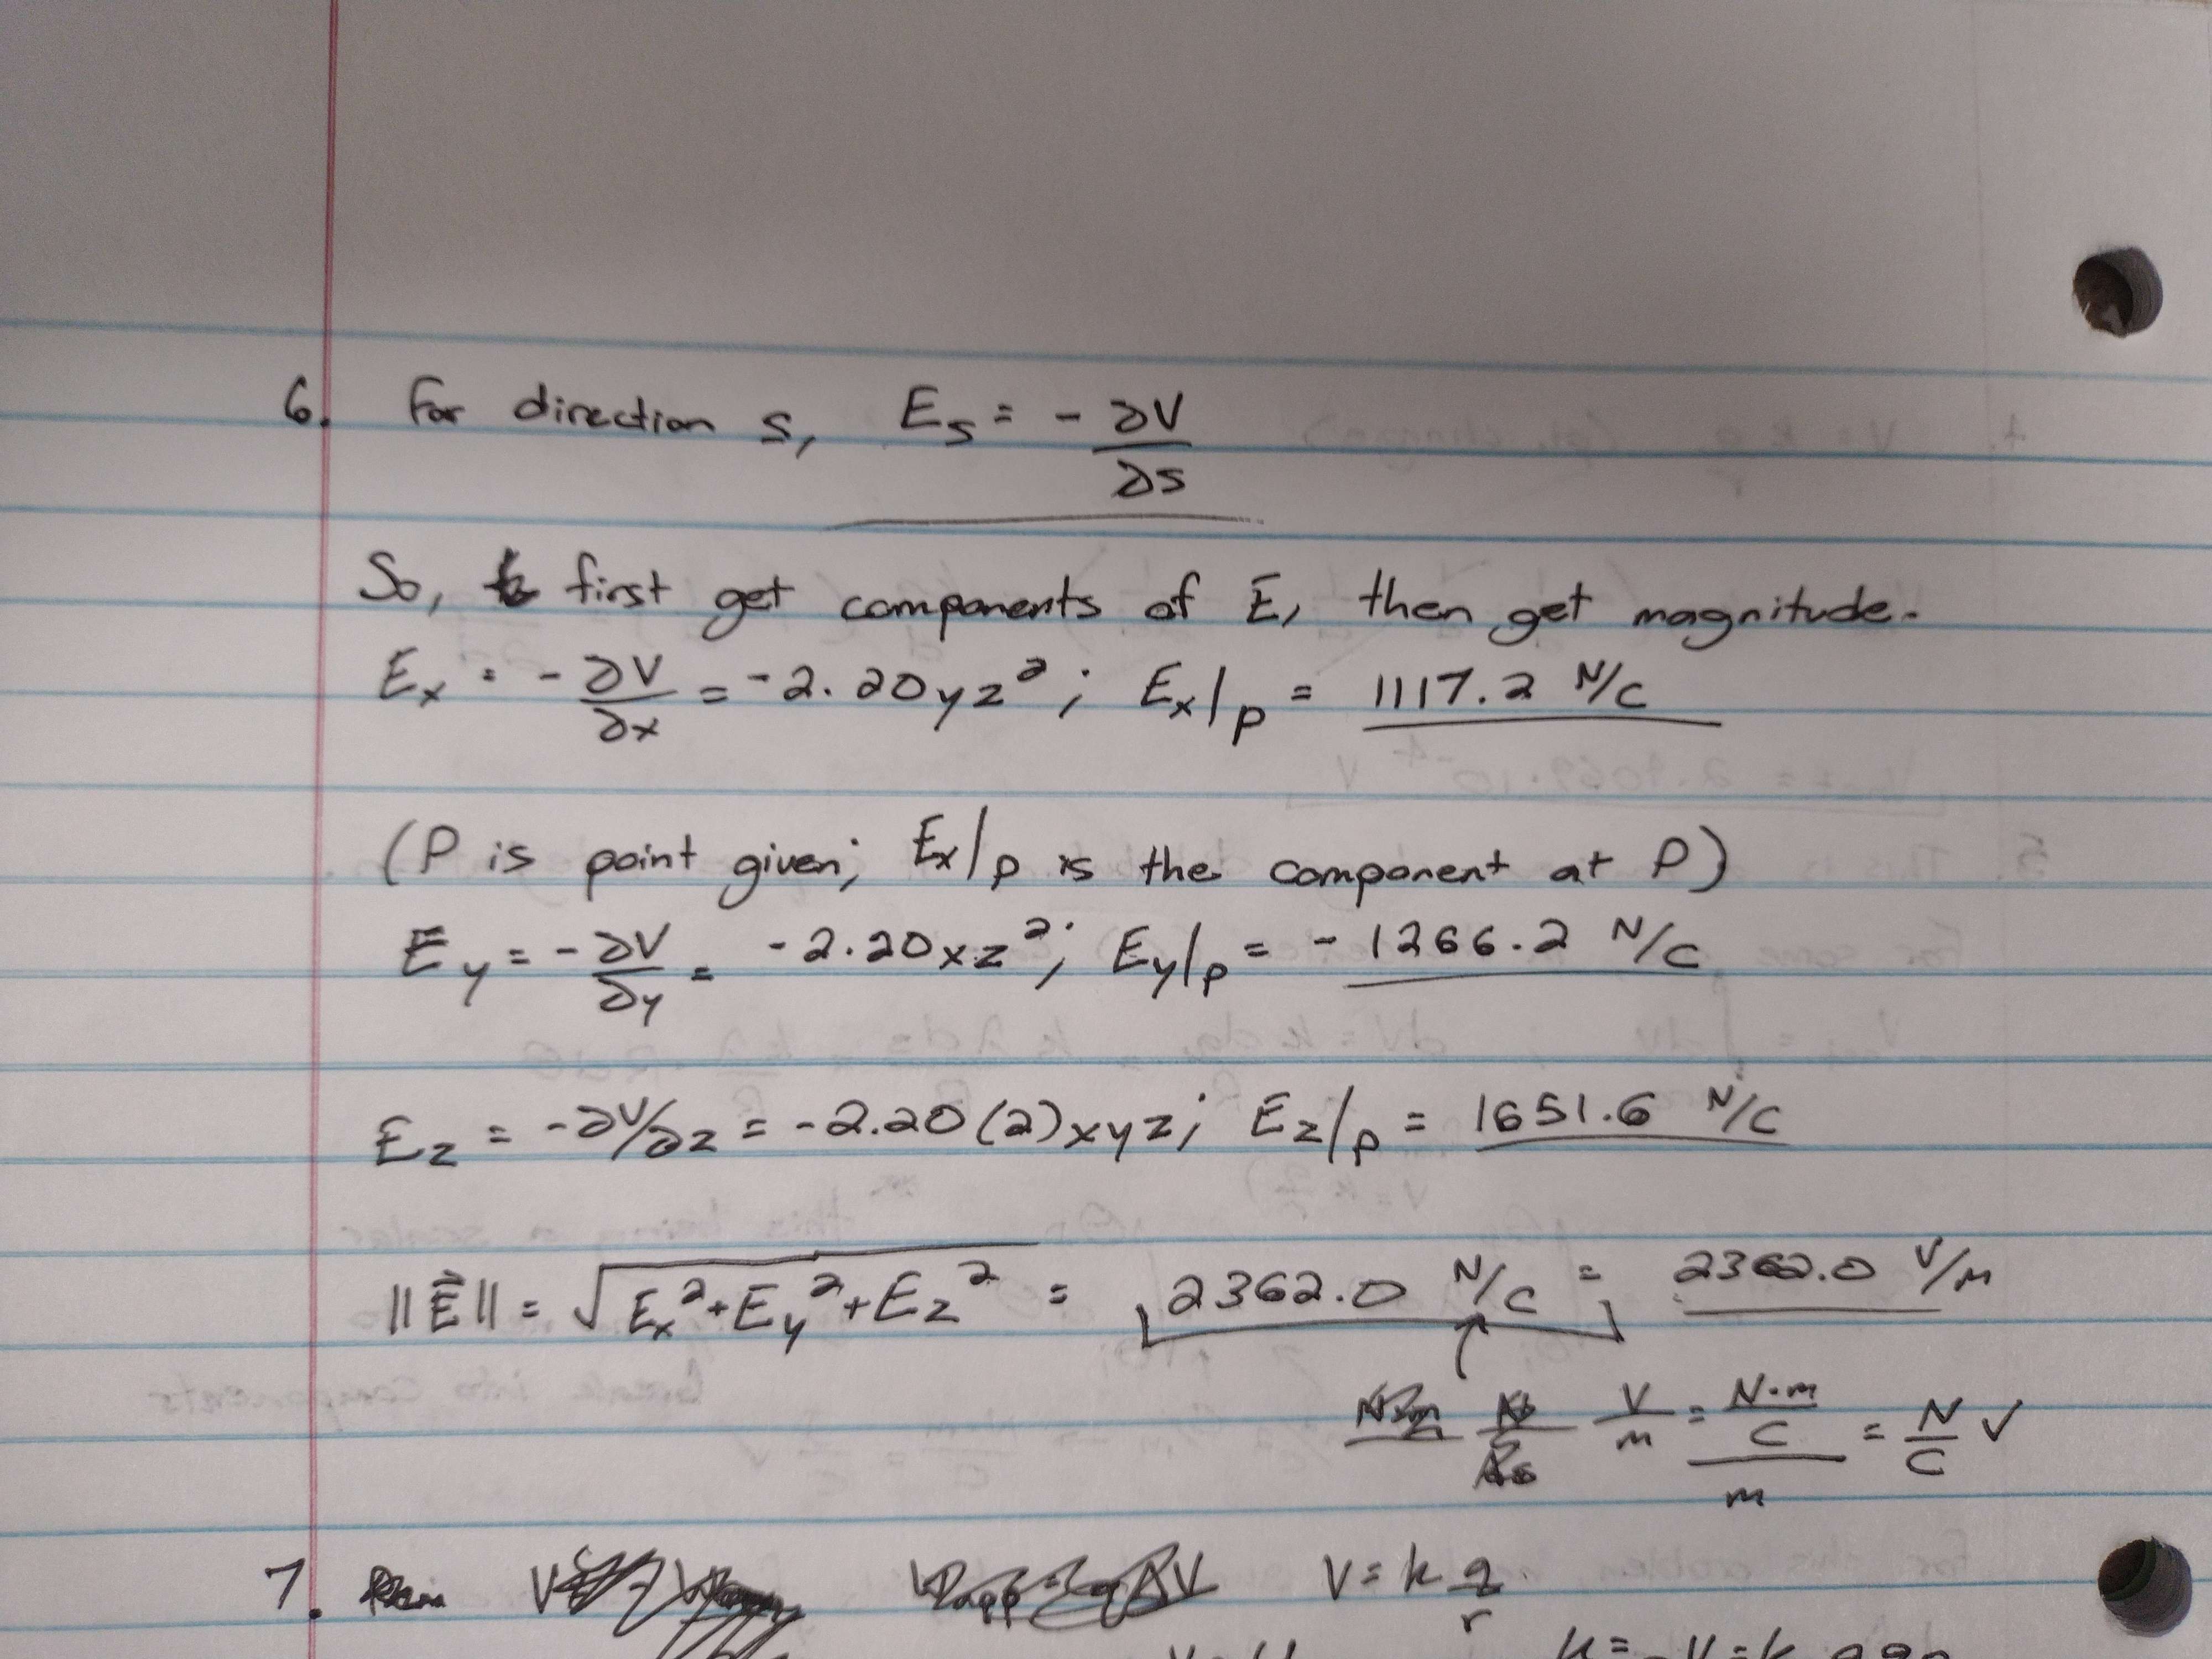 6. For direction s, E_s = - ∂V/∂s
So, first get components of E, then get magnitude.
E_x = - ∂V/∂x = -2.20yz²; E_x|_P = 1117.2 N/C
(P is point given; E_x|_P is the component at P)
E_y = - ∂V/∂y = -2.20xz²; E_y|_P = -1266.2 N/C
E_z = -∂V/∂z = -2.20(2)xyz; E_z|_P = 1651.6 N/C
||E⃗|| = √(E_x² + E_y² + E_z²) = 2362.0 N/C = 2362.0 V/m
V/m = (N·m/C)/m = N/C ✓
7. V = k q/r